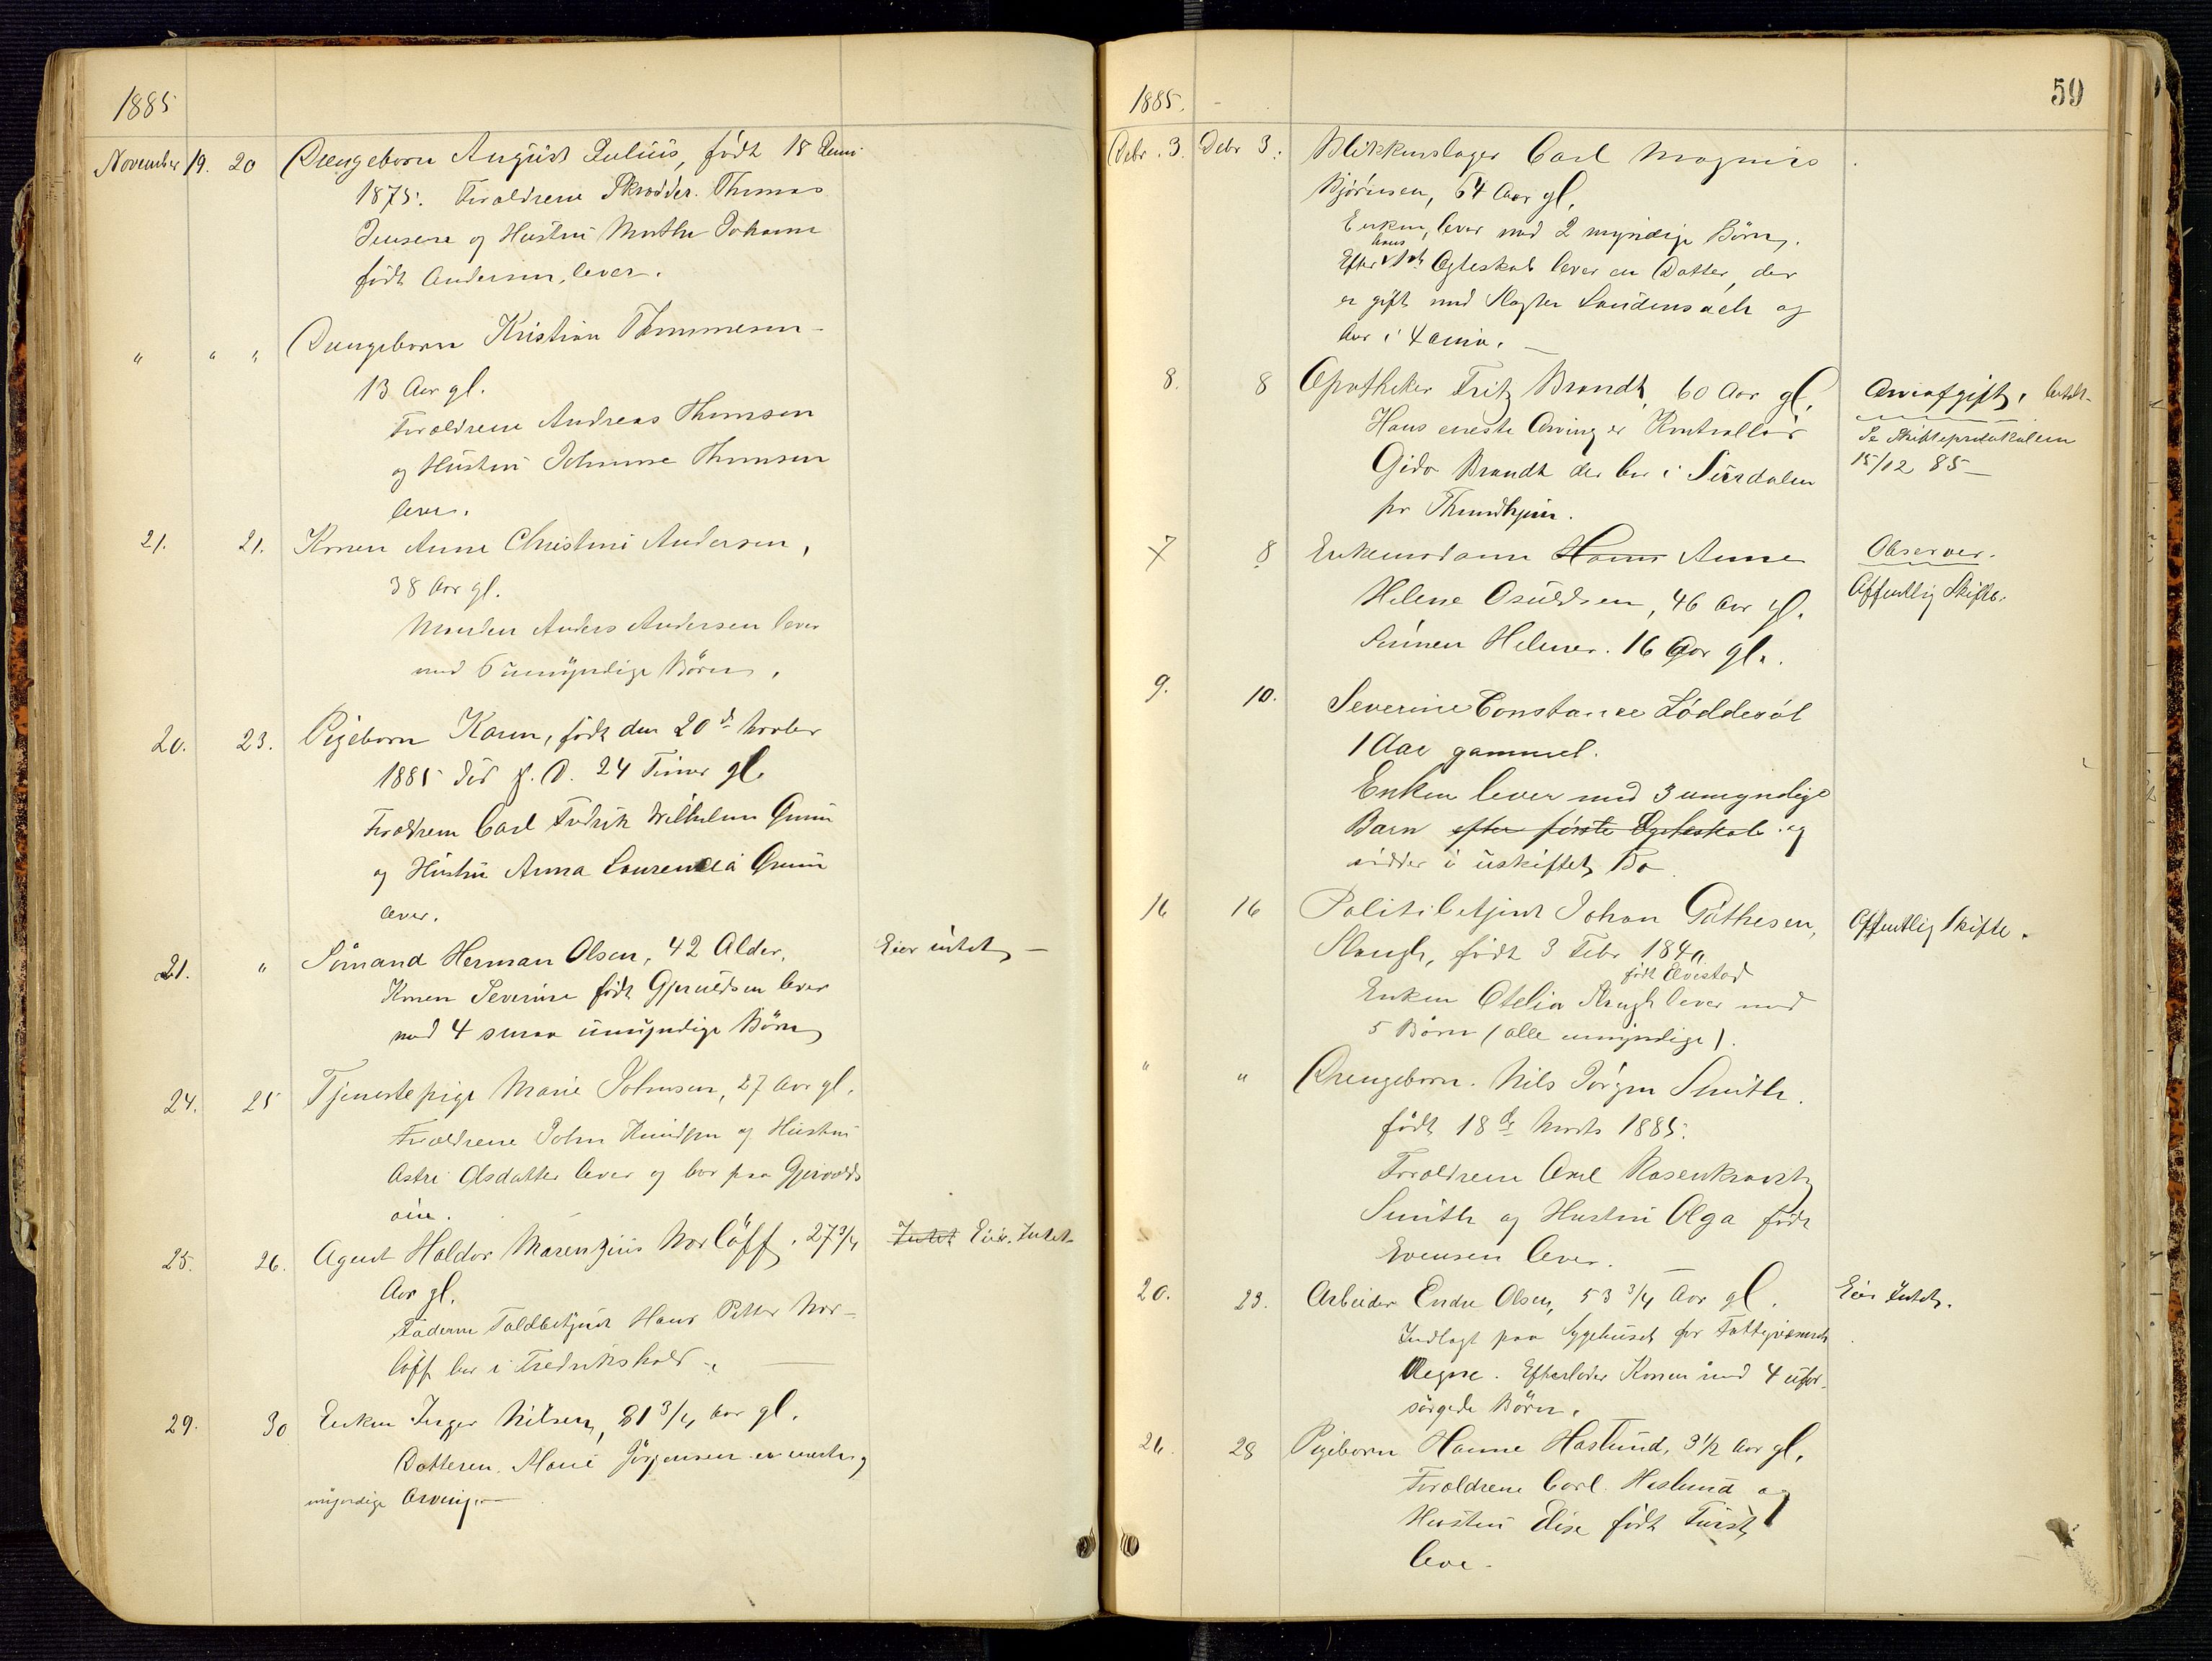 1885
November 19. 20 Drengebarn August Julius, født 18 Juni
1875. Forældrene Skrædder Thomas
Jensen og Hustru Marthe Johanne
født Andersen, lever.
" " " Drengebarn Kristian Thommesen
13 Aar gl.
Forældrene Andreas Thomsen
og Hustru Johanne Thomsen
lever.
21. 21. Konen Anne Christine Andersen,
38 Aar gl.
Manden Anders Andersen lever
med 6 umyndige Børn.
20. 23. Pigebarn Karen, født den 20de Novber
1885 død s. D. 24 Timer gl.
Forældrene Carl Fredrik Wilhelm
og Hustru Anna Laurentia
lever.
21. " Sømand Herman Olsen, 42 Alder. Eier intet
Konen Severine født Gjeruldsen lever
med 4 smaa umyndige Børn
24. 25 Tjenestepige Marie Johnsen, 27 Aar gl.
Forældrene John Knudsen og Hustru
Astri Olsdatter lever og bor paa Gjervolds
øin.
25. 26. Agent Haldor Marenzius Norløff. 27 3/4 Intet Eier Intet
Aar gl.
Faderen Toldbetjent Hans Petter Nor-
løff bor i Fredrikshald.
29. 30 Enken Inger Nilsen, 81 3/4 Aar gl.
Datteren Marie Jørgensen er eneste
myndige Arving.
1885. 59
Debr. 3. Debr 3. Blikkenslager Carl Magnus
Bjørnsen, 64 Aar gl.
Enken lever med 2 myndige Børn.
hans
Efter 1st Egteskab lever en Datter, der
er gift med Slagter og
bor i
8. 8 Apotheker Fritz Brandt, 60 Aar gl. Arveafgift, betalt.
Hans eneste Arving er Kontrollør Se Skifteprotokollen
Gido Brandt der bor i Surdalen 15/12 85
pr Throndhjem.
7 8 Enkemadame Hanne Anne Observer.
Helene Osuldsen, 46 Aar gl. Offentlig Skifte.
Sønnen Helmer. 16 Aar gl.
9. 10. Severine Constance Løddesøl
1 Aar gammel.
Enken lever med 3 umyndige
Barn efter første Egteskab og
sidder i uskiftet Bo.
16 16 Politibetjent Johan Gathesen, Offentlig Skifte.
født 3 Febr 1840
født
Enken Otelia lever med
5 Børn (alle umyndige).
" " Drengebarn. Nils Jørgen Smith.
født 18de Marts 1885.
Forældrene Axel Rosenkrantz
Smith og Hustru Olga født
Evensen lever.
20. 23. Arbeider Endre Olsen, 53 3/4 Aar gl. Eier Intet.
Indlagt paa Sygehuset for Fattigvæsenets
Regne. Efterlader Konen med 4 ufor-
sørgede Børn.
26. 28 Pigebarn Hanne Haslund, 3 1/2 Aar gl.
Forældrene Carl Haslund og
Hustru Elise født Fürst
leve.